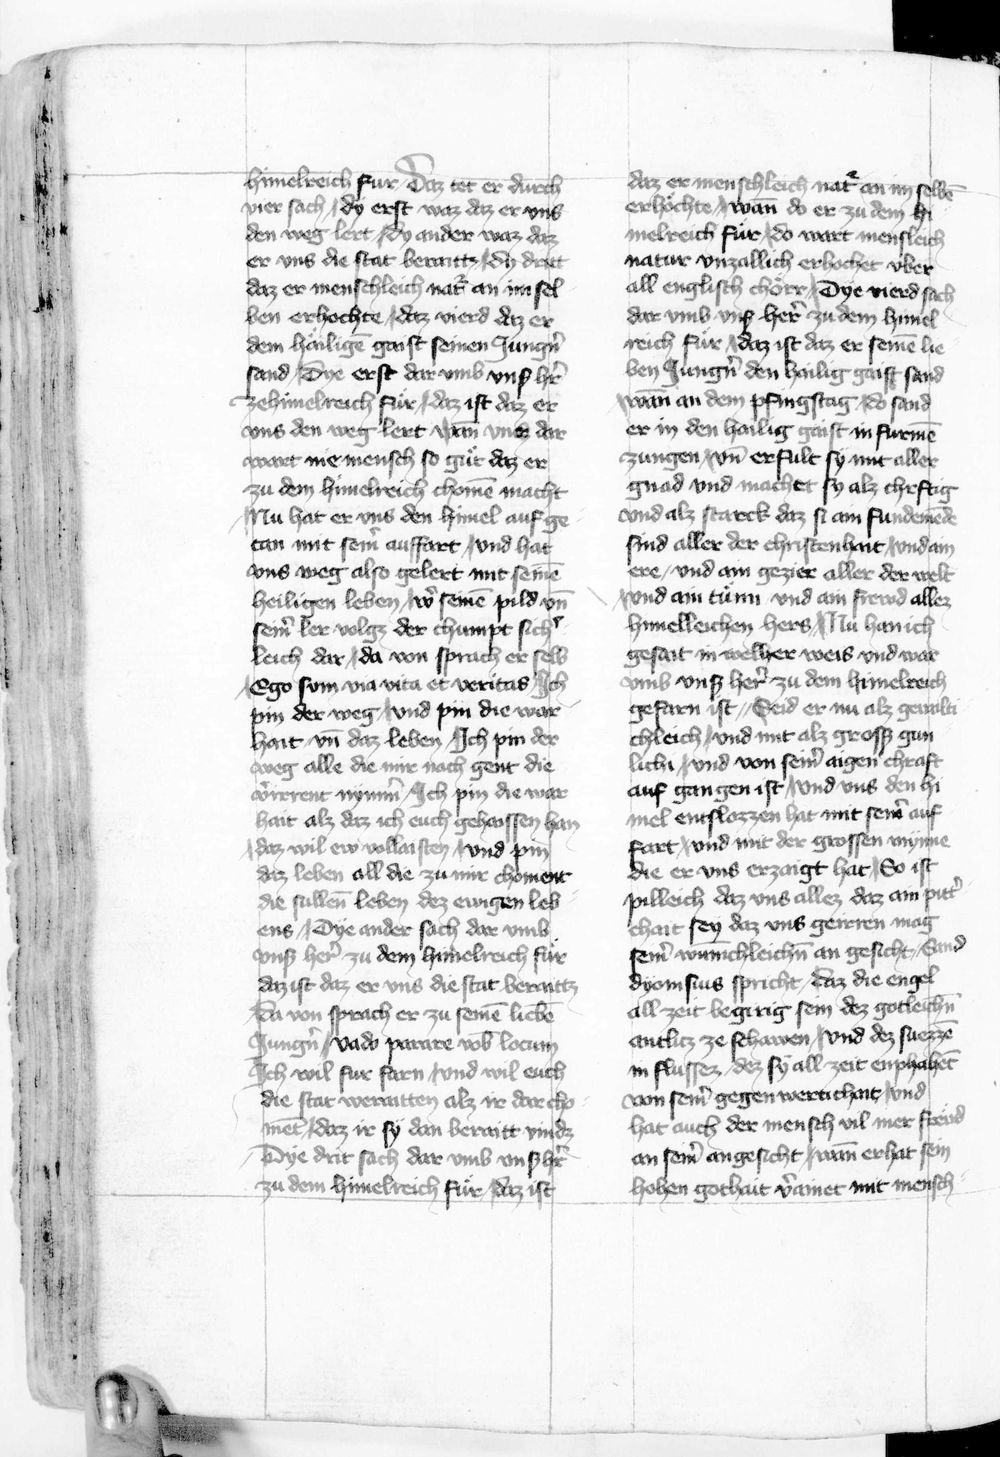 himelreich fur / Daz tet er durch
vier sach / dÿ erst waz daz er vns
den weg lert / Dy ander waz daz
er vns die stat beraittz / dÿ dritt
daz er menschleich nat͛ an im sel
ben erhochte / daz vierd daz er
dem håiligē gaist seinen Jungn̄
sand / Dÿe erst dar vmb vnß hr̄
ze himelreich fůr / daz ist daz er
vns den weg lert wan̄ vncz dar
wart nie mensch so gůt daz er
zu dem himelreich chomē macht
/ Nu hat er vns den himel auf ge
tan mit sein̄ auffart / vnd hat
vns weg also gelert mit seinē
heiligen leben / w͛ seinē pild vn̄
sein̄ ler volgz der chumpt sich͛
leich dar / da von sprach er selb
/ Ego sum via vita et veritas / Ich
pin der weg / vnd pin die war
hait vn̄ daz leben / Ich pin der
weg alle die mir nach gent die
v͛irrent nÿmm̄ / Ich pin die war
hait alz daz ich euch gehaissen han
/ daz wil ew vollaisten / vnd pin
daz leben all die zu mir choment
die sullen̄ leben dez ewigen leb
ens / Dÿe ander sach dar vmb
vnß her̄ zu dem himelreich fůr
daz ist daz er vns die stat beraittz
/ Da von sprach er zu seinē liebē
Jungn̄ / vado parare vob̄ locum
Ich wil fur farn / vnd wil euch
die stat weraitten alz ir dar cho
met / daz ir sÿ dan beraitt vindz
Dÿe drit sach dar vmb vnß hr̄
zu dem himelreich fůr / daz ist
daz er menschleich nat͛ an im selbē
erhöchte / wan̄ do er zu dem hi
melreich fůr / do wart mensleich
natur vnzallich erhochet vber
all englisch chörr / Dye vierd sach
dar vmb vnß her̄ zu dem himel
reich fůr / daz ist daz er seinē lie
ben Jungn̄ den hailig gaist sand
/ wan̄ an dem pfingstag / do sand
er in den hailig gaist in furmē
zungen / vn̄ erfult sÿ mit aller
gnad vnd machet sy alz chrftig
vnd alz starck daz si ain fundemēde
sind aller der christenhait / vnd ain
ere / vnd ain gezier aller der welt
/ vnd ain tůrn vnd ain frewd allez
himelleichen hers / Nu han ich
gesait in welher weis vnd war
vmb vnß her̄ zu dem himelreich
gefarn ist // Seid er nu alz gewalti
chleich / vnd mit alz grosß gun
lichi / vnd von sein̄ aigen chraft
auf gangen ist / vnd vns den hi
mel entslozzen hat mit sein̄ auf
fart / vnd mit der grossen mÿnne
die er vns erzaigt hat / So ist
pilleich daz vns allez daz ain pitt͛
chait seÿ daz vns geirren mag
sein̄ wun̄chleichn̄ an gesicht / Sand
dÿonisius spricht / daz die engel
all zeit begirig sein dez gotleichn̄
antlitz ze schawen / vnd dez suezzē
in flussez / dez sÿ all zeit enphahēt
von sein̄ gegenwertichait / vnd
hat auch der mensch vil mer fröud
an sein̄ angesicht / wan̄ er hat sein
hohen gothait v͛ainet mit mensch